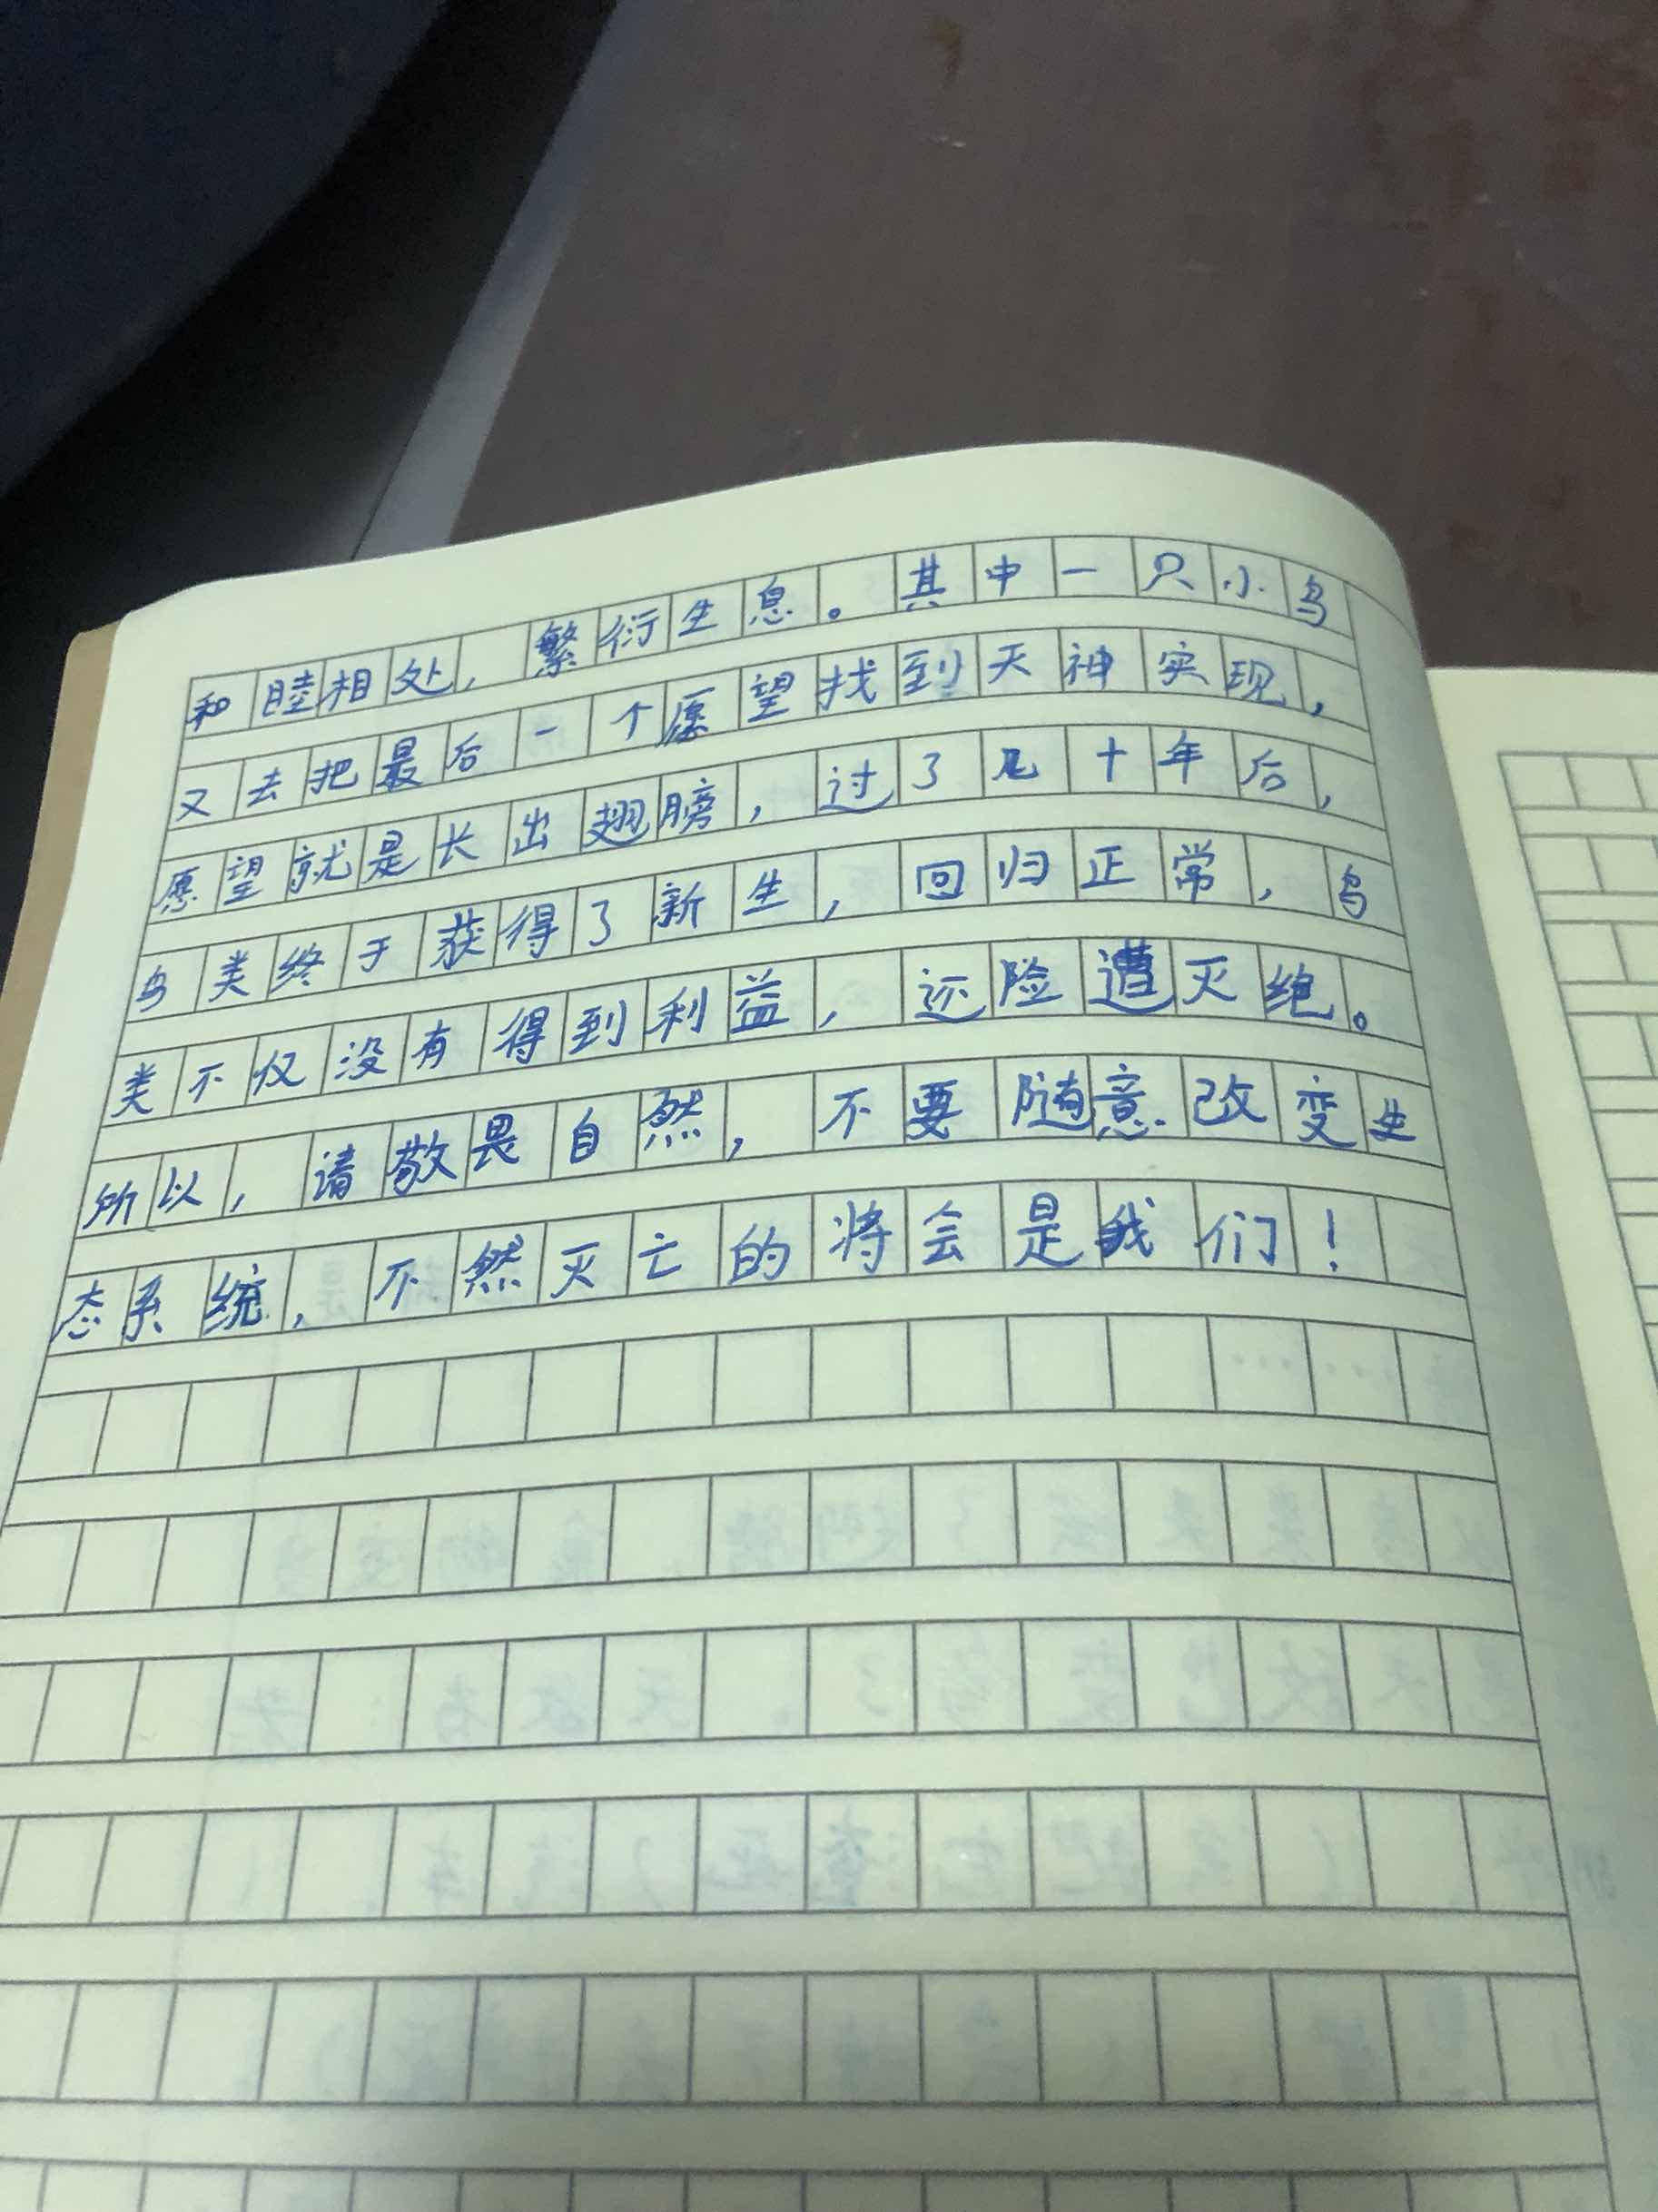 和睦相处，繁衍生息。其中一只小鸟
又去把最后一个愿望找到天神实现，
愿望就是长出翅膀，过了几十年后，
鸟类终于获得了新生，回归正常，鸟
类不仅没有得到利益，还险遭灭绝。
所以，请敬畏自然，不要随意改变生
态系统，不然灭亡的将会是我们！